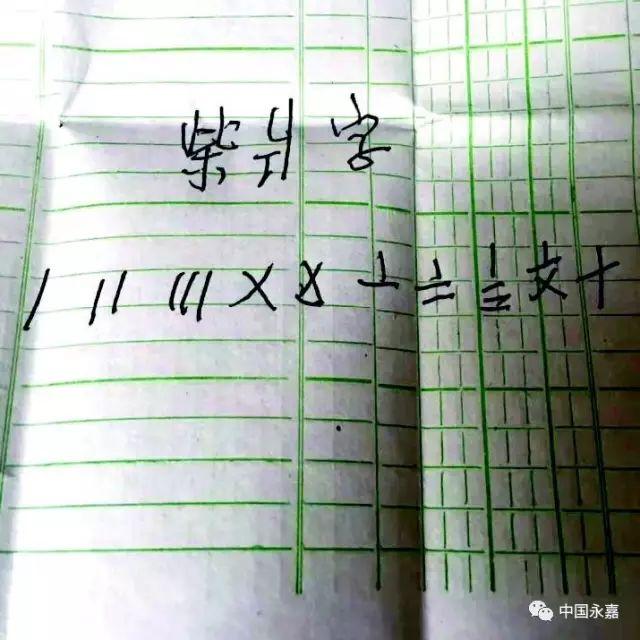 柴爿字
〡 〢 〣 〤 〥 〦 〧 〨 〩 十
中国永嘉